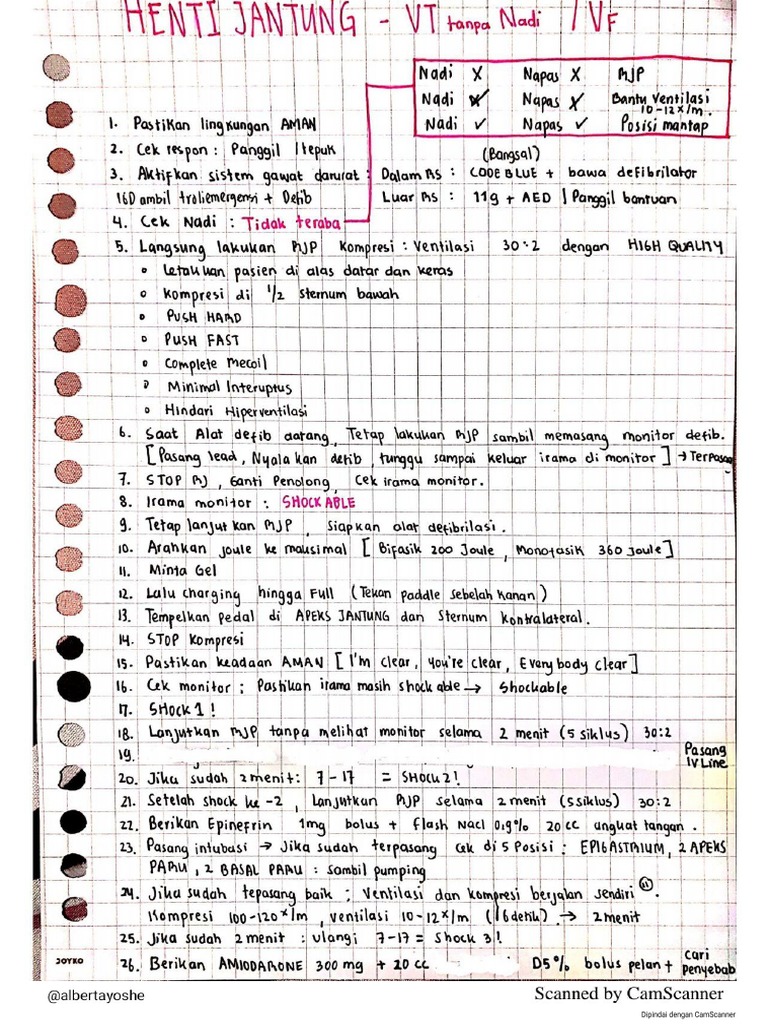 HENTI JANTUNG - VT tanpa Nadi / VF
Nadi X Napas X RJP
Nadi Napas X Bantu Ventilasi 10-12x/m
Nadi ✓ Napas ✓ Posisi mantap
1. Pastikan lingkungan AMAN
2. Cek respon : Panggil / tepuk
(Bangsal)
3. Aktifkan sistem gawat darurat : Dalam RS : CODE BLUE + bawa defibrilator
IGD ambil troliemergensi + Defib Luar RS : 119 + AED / Panggil bantuan
4. Cek Nadi : Tidak teraba
5. Langsung lakukan RJP Kompresi : Ventilasi 30:2 dengan HIGH QUALITY
o Letakkan pasien di alas datar dan keras
o Kompresi di 1/2 sternum bawah
o PUSH HARD
o PUSH FAST
o Complete Recoil
o Minimal Interuptus
o Hindari Hiperventilasi
6. Saat Alat defib datang, Tetap lakukan RJP sambil memasang monitor defib.
[Pasang lead, Nyalakan defib, tunggu sampai keluar irama di monitor] → Terpasang
7. STOP RJ, Ganti Penolong, Cek irama monitor.
8. Irama monitor : SHOCKABLE
9. Tetap lanjutkan RJP, Siapkan alat defibrilasi.
10. Arahkan joule ke maksimal [ Bifasik 200 Joule, Monofasik 360 Joule]
11. Minta Gel
12. Lalu charging hingga Full (Tekan paddle sebelah kanan)
13. Tempelkan pedal di APEKS JANTUNG dan Sternum Kontralateral.
14. STOP Kompresi
15. Pastikan keadaan AMAN [I'm clear, you're clear, Everybody clear]
16. Cek monitor : Pastikan irama masih shockable → Shockable
17. Shock 1 !
18. Lanjutkan RJP tanpa melihat monitor selama 2 menit (5 siklus) 30:2
19. Pasang IV Line
20. Jika sudah 2 menit : 7-17 = SHOCK 2 !
21. Setelah shock ke-2, Lanjutkan RJP selama 2 menit (5siklus) 30:2
22. Berikan Epinefrin 1mg bolus + flash Nacl 0,9% 20 cc angkat tangan.
23. Pasang intubasi → Jika sudah terpasang cek di 5 Posisi : EPIGASTRIUM, 2 APEKS
PARU, 2 BASAL PARU : sambil pumping
24. Jika sudah tepasang baik : Ventilasi dan kompresi berjalan sendiri"
Kompresi 100-120x/m, ventilasi 10-12x/m (/6detik) → 2 menit
25. Jika sudah 2 menit : ulangi 7-17 = Shock 3 !
26. Berikan AMIODARONE 300 mg + 20 cc D5% bolus pelan + cari penyebab
JOYKO
@albertayoshe
Scanned by CamScanner
Dipindai dengan CamScanner